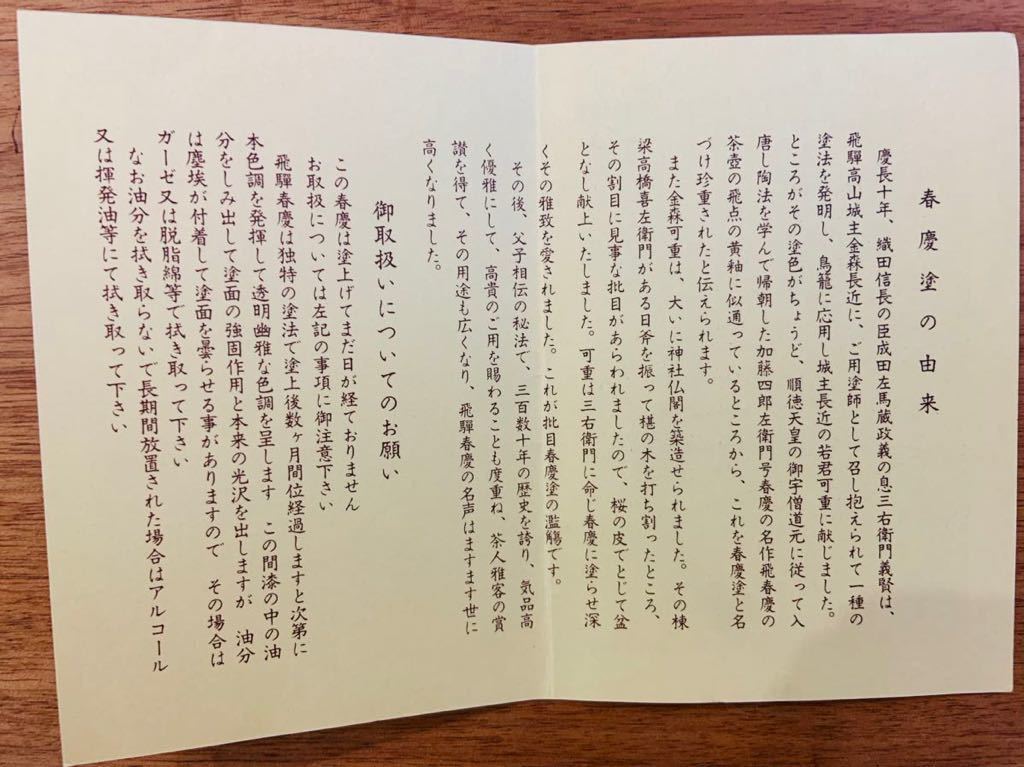 春慶塗の由来
慶長十年、織田信長の臣成田左馬蔵政義の息三右衛門義賢は、
飛騨高山城主金森長近に、ご用塗師として召し抱えられて一種の
塗法を発明し、鳥籠に応用し城主長近の若君可重に献じました。
ところがその塗色がちょうど、順徳天皇の御宇僧道元に従って入
唐し陶法を学んで帰朝した加藤四郎左衛門号春慶の名作飛春慶の
茶壺の飛点の黄釉に似通っているところから、これを春慶塗と名
づけ珍重されたと伝えられます。
また金森可重は、大いに神社仏閣を築造せられました。その棟
梁高橋喜左衛門がある日斧を振って椹の木を打ち割ったところ、
その割目に見事な批目があらわれましたので、桜の皮でとじて盆
となし献上いたしました。可重は三右衛門に命じ春慶に塗らせ深
くその雅致を愛されました。これが批目春慶塗の濫觴です。
その後、父子相伝の秘法で、三百数十年の歴史を誇り、気品高
く優雅にして、高貴のご用を賜わることも度重ね、茶人雅客の賞
讃を得て、その用途も広くなり、飛騨春慶の名声はますます世に
高くなりました。
御取扱いについてのお願い
この春慶は塗上げてまだ日が経ておりません
お取扱については左記の事項に御注意下さい
飛騨春慶は独特の塗法で塗上後数ヶ月間位経過しますと次第に
本色調を発揮して透明幽雅な色調を呈します　この間漆の中の油
分をしみ出して塗面の強固作用と本来の光沢を出しますが　油分
は塵埃が付着して塗面を曇らせる事がありますので　その場合は
ガーゼ又は脱脂綿等で拭き取って下さい
なお油分を拭き取らないで長期間放置された場合はアルコール
又は揮発油等にて拭き取って下さい